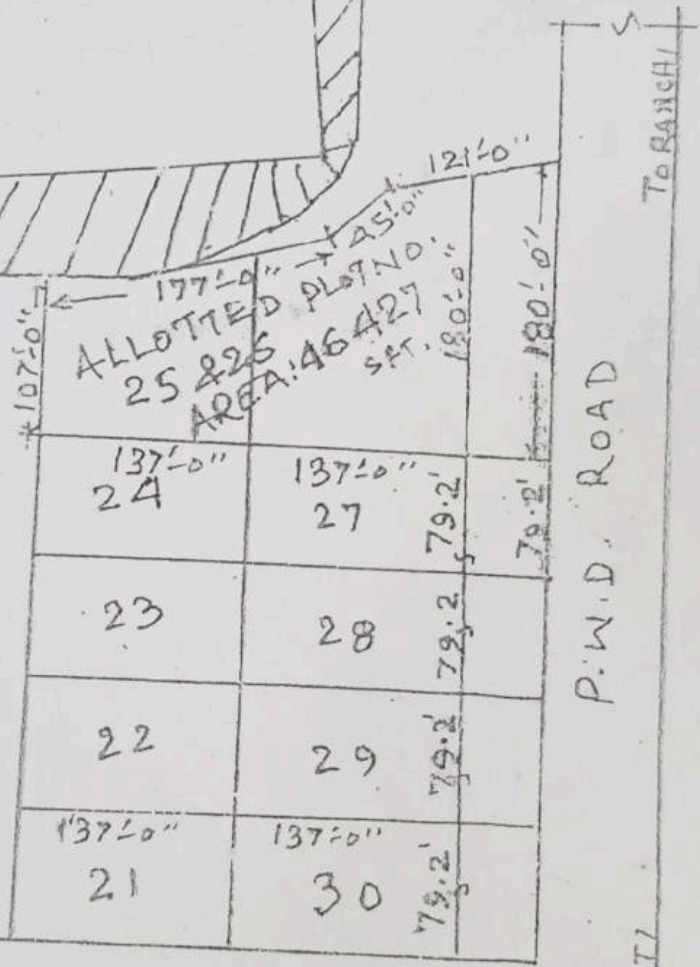 S
TO RANCHI
121'-0"
45'-0"
177'-0"
ALLOTTED PLOT NO.
25 &26
AREA:46427
SFT.
180'-0"
180'-0"
107'-0"
137'-0"
24
137'-0"
27
79.2'
79.2'
P.W.D. ROAD
23
28
79.2
22
29
79.2'
137'-0"
21
137'-0"
30
79.2'